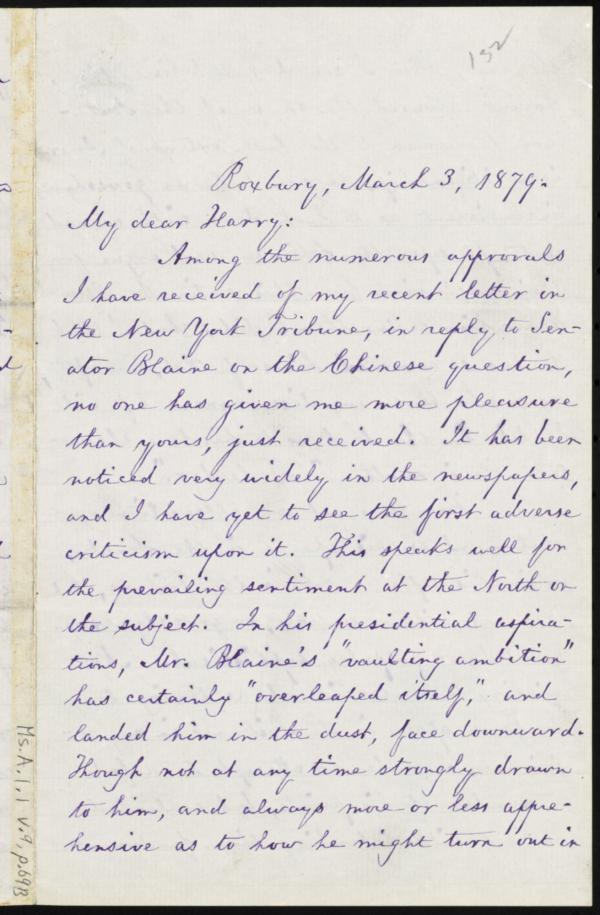 152
Roxbury, March 3, 1879.
My dear Harry:
Among the numerous approvals
I have received of my recent letter in
the New York Tribune, in reply to Sen-
ator Blaine on the Chinese question,
no one has given me more pleasure
than yours, just received. It has been
noticed very widely in the newspapers,
and I have yet to see the first adverse
criticism upon it. This speaks well for
the prevailing sentiment at the North on
the subject. In his presidential aspira-
tions, Mr. Blaine's "vaulting ambition"
has certainly "overleaped itself," and
landed him in the dust, face downward.
Though not at any time strongly drawn
to him, and always more or less appre-
hensive as to how he might turn out in
Ms.A.1.1 v.9, p.69B